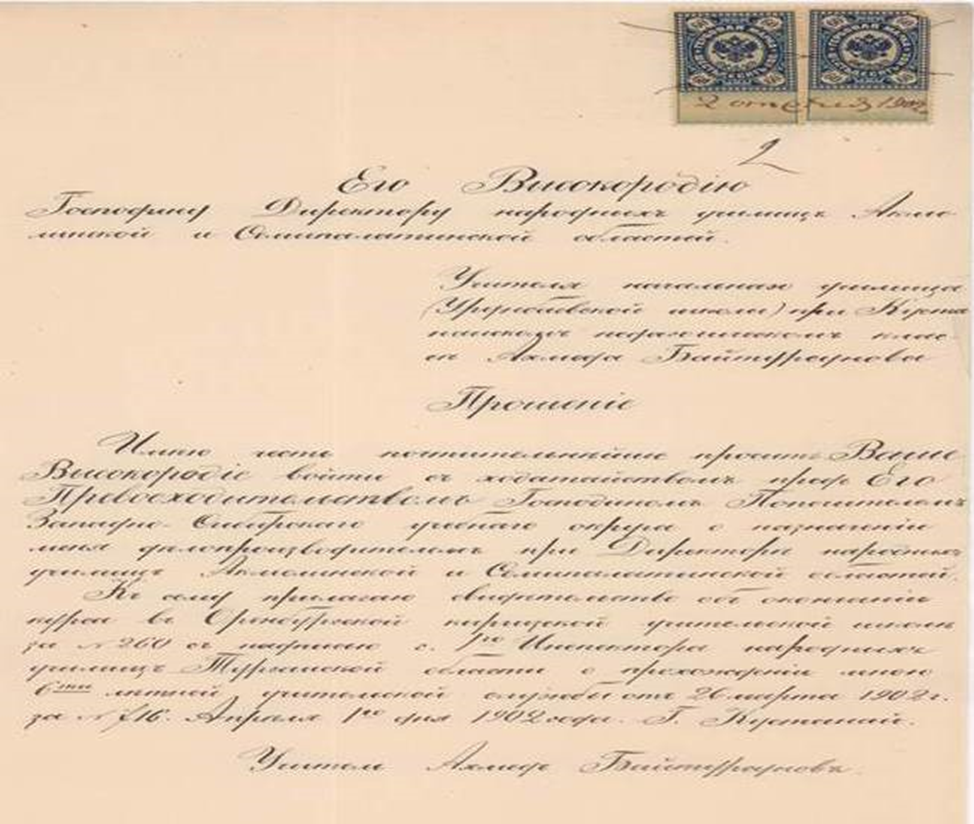 2
Его Высокородію
Господину Директору народныхъ училищъ Акмо-
линской и Семипалатинской областей.
Учителя начальнаго училища
при Куста-
найскомъ педагогическомъ клас-
сѣ Ахмеда Байтурсунова
Прошеніе
Имѣю честь почтительнѣйше просить Ваше
Высокородіе войти съ ходатайствомъ предъ Его
Превосходительствомъ Господиномъ Попечителемъ
Западно-Сибирскаго учебнаго округа о назначеніи
меня дѣлопроизводителемъ при Директорѣ народныхъ
училищъ Акмолинской и Семипалатинской областей.
Къ сему прилагаю свидѣтельство объ окончаніи
курса въ Оренбургской киргизской учительской школѣ
за №260 съ надписью г. Инспектора народныхъ
училищъ Тургайской области о прохожденіи мною
6ти лѣтней учительской службы отъ 26 марта 1902 г.
за №716. Апрѣля 1го дня 1902 года. Г. Кустанай.
Учитель Ахмедъ Байтурсуновъ.